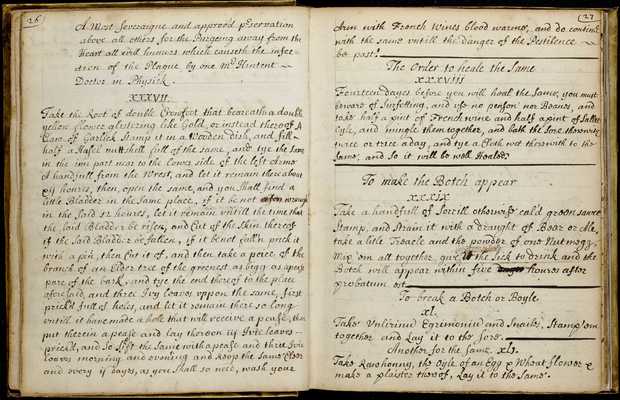 26
A Most Soveraigne and approved preservation
above all others for the Purgeing away from the
heart all evil humors which causeth the infec-
tion of the Plague by one Mr
Doctor in Physick.
XXXVII
Take the Root of double Crowfoot that beareth a double
yellow flower glistering like Gold, or instead thereof A
Clove of Garlick stamp it in a Wooden Dish, and fill
half a Hasel nutt shell full of the same, and tye the same
in the inn part near to the lower side of the left Arme
A handfull from the Wrest, and let it remain there about
12 houres, then open the same, and you shall find a
little Bladder in the same place, if it be not
in the said 12 houres, let it remain untill the time that
the said Bladder be risen, and Cut of the Skin thereof
if the said Bladder be fallen, if it be not full prick it
with a pin, then Cut it of, and then take a peece of the
branch of an Elder tree of the greenest as bigg as a pease
pare of the bark, and tye the end thereof to the place
aforesaid, and three Ivy leaves uppon the same, first
prickt full of holes, and let it remain there so long
untill it have made a hole that will receive a pease, then
put therein a pease and lay thereon Ivie leaves
prickt, and so shift the same with a pease and three Ivie
leaves morning and evening and keep the same
and every days, as you shall so need, wash your
27
Arm with French Wines blood warme, and do continue
with the same untill the danger of the Pestilence
be past.
The Order to heale the Same
XXXVIII
Fourteen dayes before you will heal the Same, you must
beware of Surfetting, and use no penson nor Beanes, and
take half a pint of French wine and half a pint of Sallet
Oyle, and mingle them together, and bath the Sore therewith
twice or trice a day, and tye a Cloth wet therewith to the
Same, and So it will be well Healed.
To make the Botch appear
XXXIX
Take a handfull of Sorrill otherwise cal'd green sauce
Stamp, and strain it with a draught of Beer or Ale,
take a litle Treacle and the powder of one Nutmegg.
Mix 'em all together, give it the Sick to drink and the
Botch will appear within five houres after
probatum est
To break a Botch or Boyle
xl.
Take Egrimoniu and Snailes, Stamp 'em
together and Lay it to the Sore.
Another for the Same xli.
Take Rawhonny, the Oyle of an Egg & Wheat flower &
make a plaister therof, Lay it to the Same.